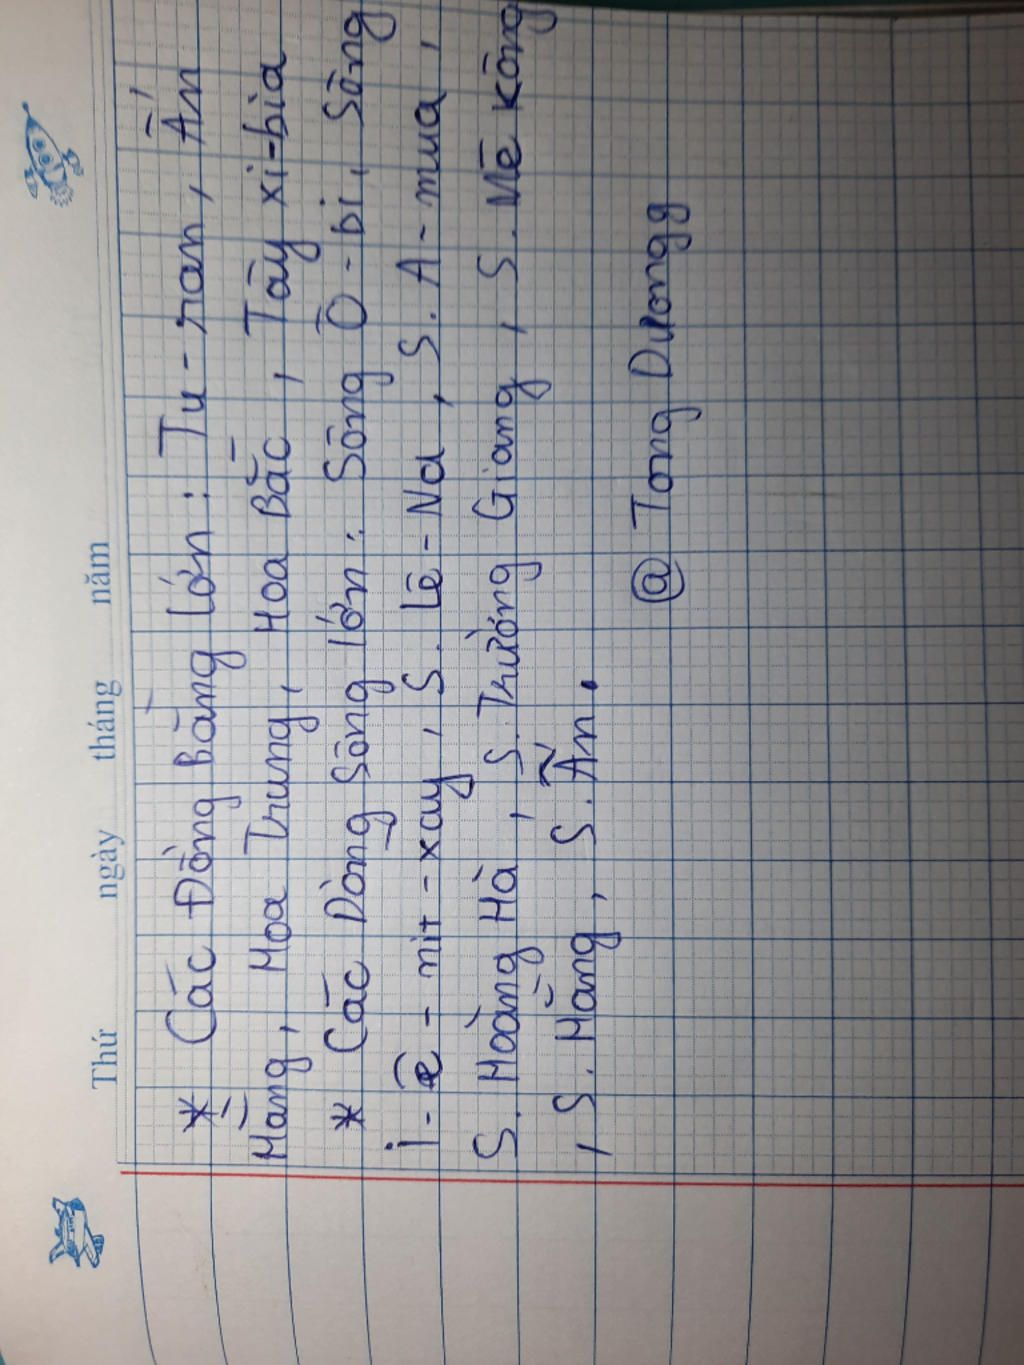 Thứ ngày tháng năm
* Các Đồng Bằng lớn: Tu-ran, Ấn
Hằng, Hoa Trung, Hoa Bắc, Tây xi-bia
* Các Dòng Sông lớn: Sông Ô-bi, Sông
i-ê-nit-xay, S. Lê-Na, S. A-mua,
S. Hoàng Hà, S. Trường Giang, S. Mê Kông
, S. Hằng, S. Ấn.
@ Tong Duongg